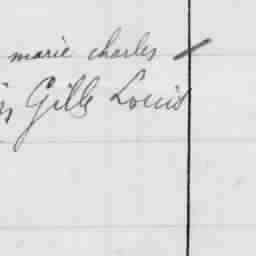 marie charles
Gille Louis